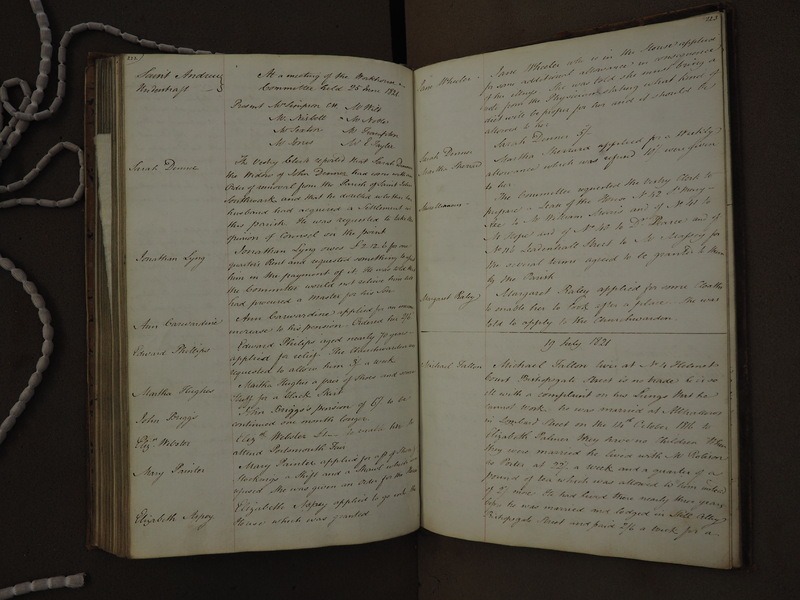 222
Saint Andrew
Undershaft
At a meeting of the Workhouse
Committee held 25 June 1821
Present Mr Simpson CW Mr Wild
Mr Nisbett Mr
Mr Saxton Mr Frampton
Mr Jones Mr E Taylor
Sarah Denner
The Vestry Clerk reported that Sarah Denner
the Widow of John Denner had come with an
Order of removal from the Parish of Saint John
Southwark and that he doubted whether her
husband had acquired a Settlement in
this parish. He was requested to take the
opinion of Counsel on the point
Jonathan Lyng
Jonathan Lyng owes £2.12.6 for one
quarters Rent and requested something to assist
him in the payment of it. He was told that
the Committee would not relieve him but
had procured a Master for his Son
Ann Carwardine
Ann Carwardine applied for an
increase to his pension. Ordered her 2/6
Edward Phillips
Edward Philips aged nearly 70 years
applied for relief. The Churchwarden was
requested to allow him 3/ a week
Martha Hughes
Martha Hughes a pair of Shoes and some
for a Slack
John Briggs
John Briggs's pension of 6/ to be
continued one month longer
Elizth Webster
Elizth Webster £1 to enable her to
attend Portsmouth Fair
Mary Painter
Mary Painter applied for a pr of Shoes
Stockings a Shift and a Shawl which was
refused. She was given an Order for the House
Elizabeth Aspey
Elizabeth Aspey applied to go into the
House which was granted
223
Jane Wheeler
Jane Wheeler who is in the House applied
for some additional allowance in consequence
of her Legs. She was told she must bring a
note from the Physician stating what kind of
diet will be proper for her and it should be
allowed to her
Sarah Denner
Sarah Denner 5/
Martha Sherrard
Martha Sherrard applied for a Weekly
allowance which was refused 10/ were given
to her
Miscellaneous
The Committee requested the Vestry Clerk to
prepare a Lease of the House No 42 St Mary
Axe to Mr William Norris and of No 41 to
Mr and of No 40 to Dr Pearce and of
No 42 Leadenhall Street to Mr for
the several terms agreed to be granted to them
by the Parish
Margaret Rixley
Margaret Rixley applied for some Cloaths
to enable her to look after a place. She was
told to apply to the Churchwarden
19 July 1821
Michael Fallon
Michael Fallon lives at No 4 Helmet
Court Bishopsgate Street is no trade &c is so
ill with a complaint on his Lungs that he
cannot work. he was married at Allhallows
in Lombard Street on the 14th October 1816 to
Elizabeth Palmer they have no Children When
they were married he lived with Mr
as Porter at 22/ a week and a quarter of a
pound of tea which was allowed to him instead
of 2/ more He had lived there nearly three years
he was married and lodged in Alley
Bishopsgate Street and paid 2/6 a week for a